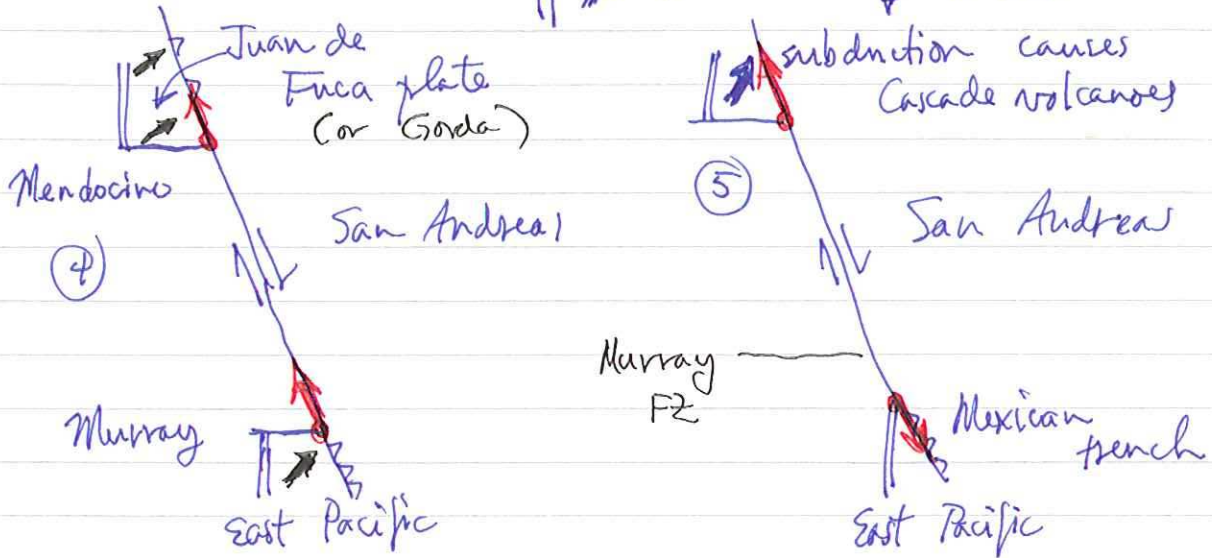 Juan de
Fuca plate
(or Gorda)
Mendocino
San Andreas
④
Murray
East Pacific
subduction causes
Cascade volcanoes
⑤
San Andreas
Murray
FZ
Mexican
trench
East Pacific